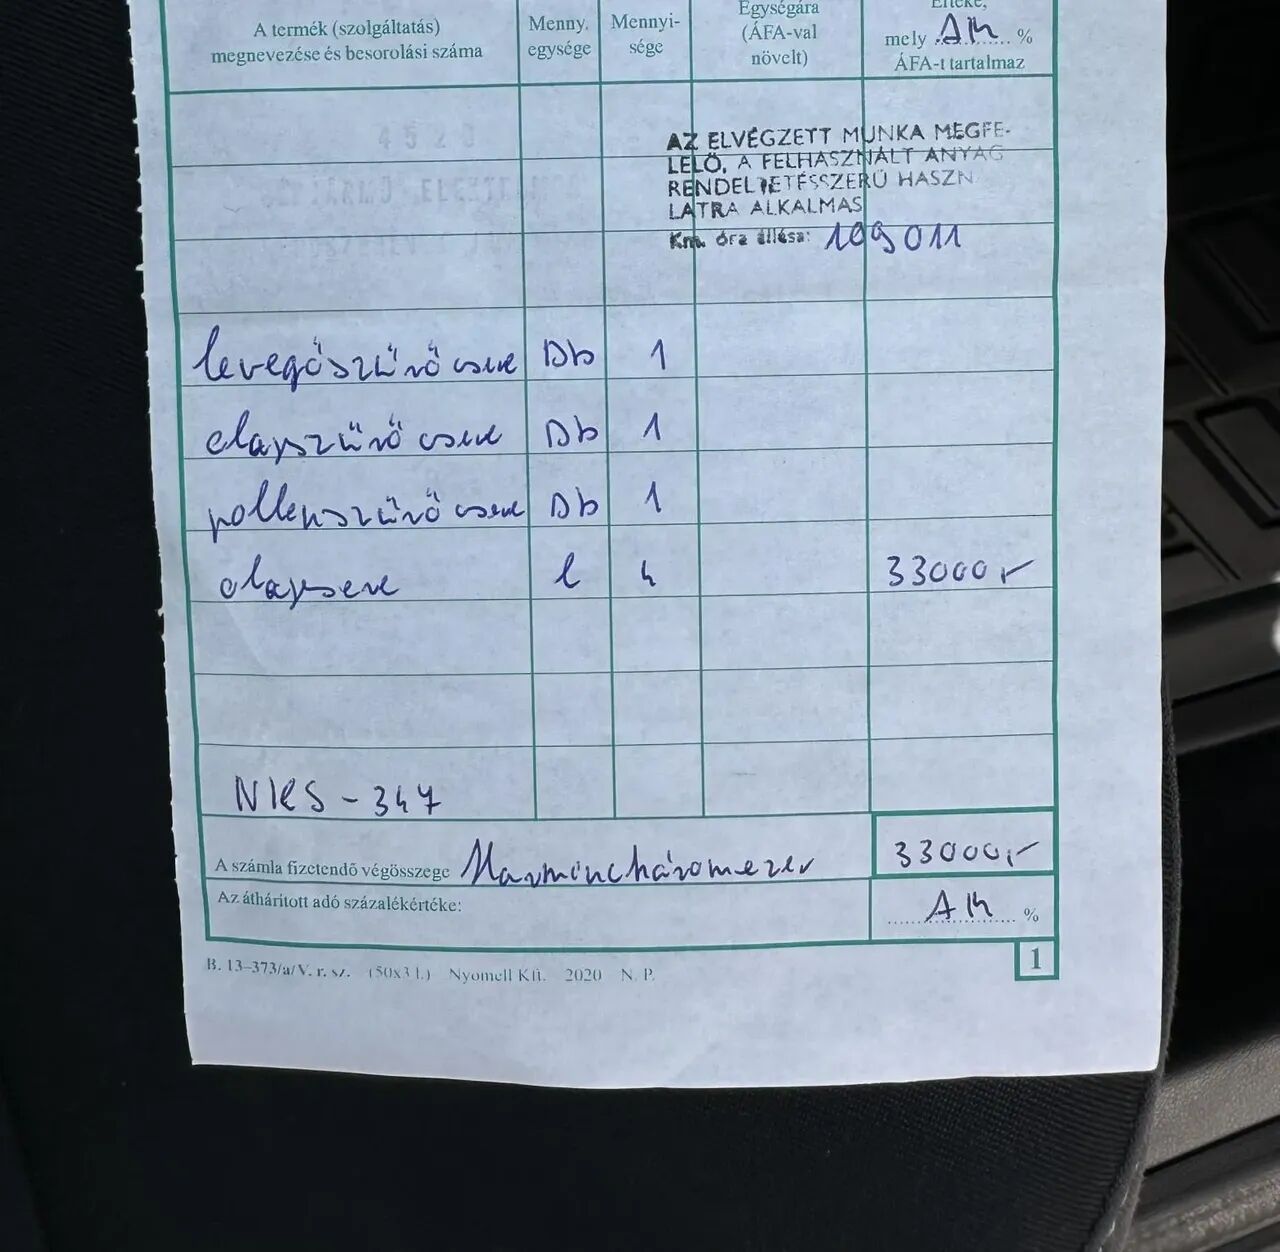 A termék (szolgáltatás)
megnevezése és besorolási száma
Menny.
egysége
Mennyi-
sége
Egységára
(ÁFA-val
növelt)
Értéke,
mely AM %
ÁFA-t tartalmaz
AZ ELVÉGZETT MUNKA MEGFE-
LELŐ, A FELHASZNÁLT ANYAG
RENDELTETÉSSZERŰ HASZN
LATRA ALKALMAS
Km. óra állása: 109011
levegőszűrő csere Db 1
olajszűrő csere Db 1
pollenszűrő csere Db 1
olajcsere l 4 33000,-
NKS-347
A számla fizetendő végösszege Harmincháromezer 33000,-
Az áthárított adó százalékértéke: AM %
B. 13–373/a/V. r. sz. (50x3 l.) Nyomell Kft. 2020 N. P.
1